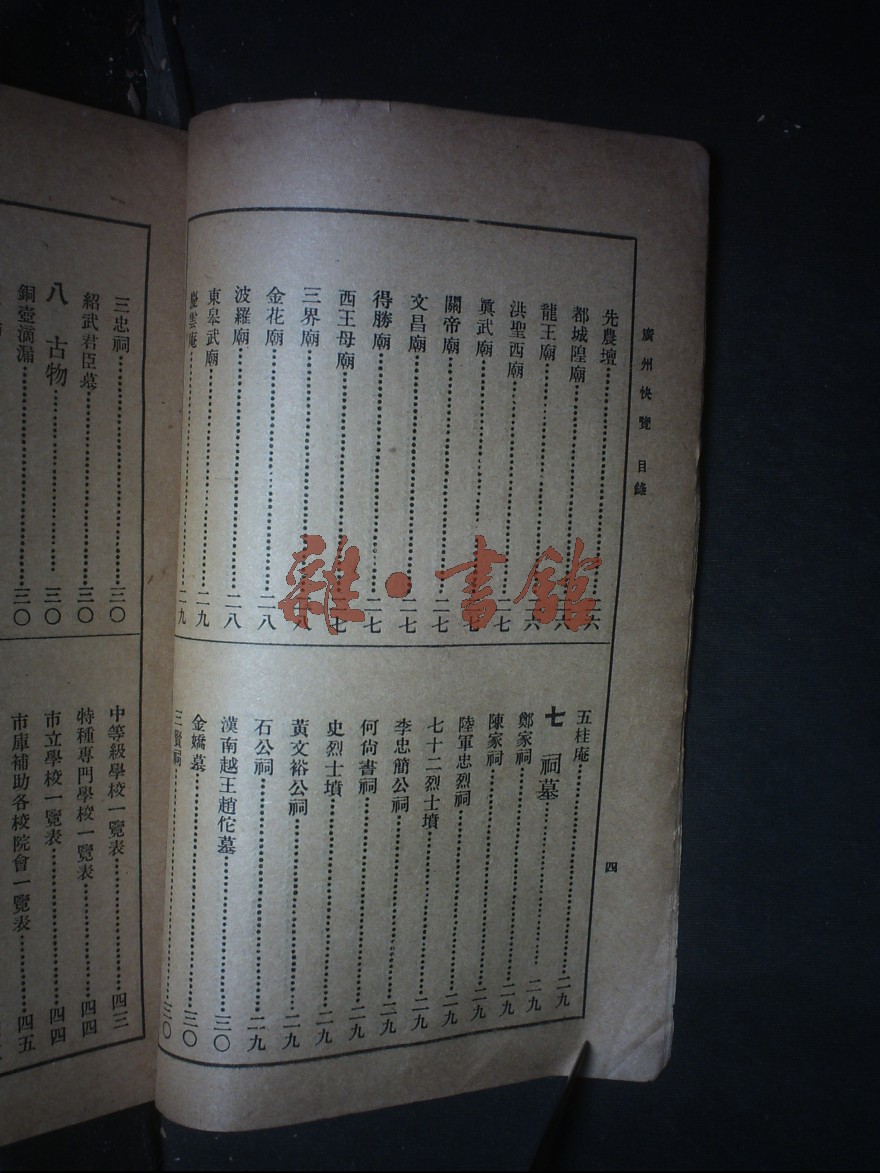 廣州快覽 目錄
四
先農壇 二六
都城隍廟 二六
龍王廟 二六
洪聖西廟 二七
眞武廟 二七
關帝廟 二七
文昌廟 二七
得勝廟 二七
西王母廟 二七
三界廟 二八
金花廟 二八
波羅廟 二八
東皋武廟 二九
慶雲庵 二九
五桂庵 二九
七 祠墓 二九
鄭家祠 二九
陳家祠 二九
陸軍忠烈祠 二九
七十二烈士墳 二九
李忠簡公祠 二九
何尙書祠 二九
史烈士墳 二九
黃文裕公祠 二九
石公祠 二九
漢南越王趙佗墓 三〇
金嬌墓 三〇
三賢祠 三〇
三忠祠 三〇
紹武君臣墓 三〇
八 古物 三〇
銅壺滴漏 三〇
中等級學校一覽表 四三
特種專門學校一覽表 四四
市立學校一覽表 四四
市庫補助各校院會一覽表 四五
雜·書館